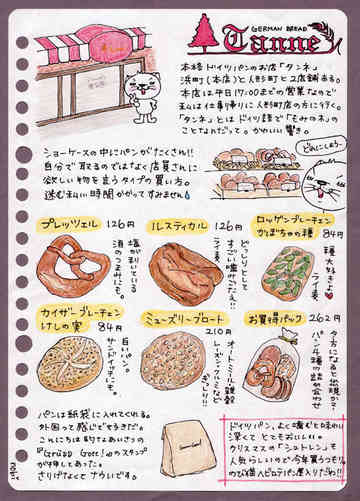 GERMAN BREAD
Tanne
本格ドイツパンのお店「タンネ」
浜町(本店)と人形町と2店舗ある。
本店は平日17:00までの営業なので
私は仕事帰りに人形町店の方に行く。
「タンネ」とはドイツ語で「もみの木」の
ことなんだって。かわいい響き。
ショーケースの中にパンがたくさん!!
自分で取るのではなく店員さんに
欲しい物を言うタイプの買い方。
迷む私い時間がかかってすみません
どれにしよう…
プレッツェル 126円
塩がきいている
酒のつまみにも。
ルスティカル 126円
どっしりとして
すごい噛みごたえ!!
ライ麦
ロッゲンブレーチェン
かぼちゃの種 84円
種大好きよ
ライ麦
カイザーブレーチェン
けしの実 84円
白いパン。
サンドイッチにも。
ミューズリーブロート
210円
オートミール雑穀
レーズン・クルミなど
ぎっしり!!
お買得パック 262円
夕方になると出現か?
パン4種の詰め合わせ
パンは紙袋に入れてくれる。
外国って感じでステキだ。
これにはありがとうあいさつの
「Grüss Gott!」のスタンプ
が押してあった。
さりげなくてナウいです。
ドイツパン、よく噛むと味わい
深くてとてもおいしい。
クリスマスの「シュトレン」も
人気らしいので今年買うつもり。